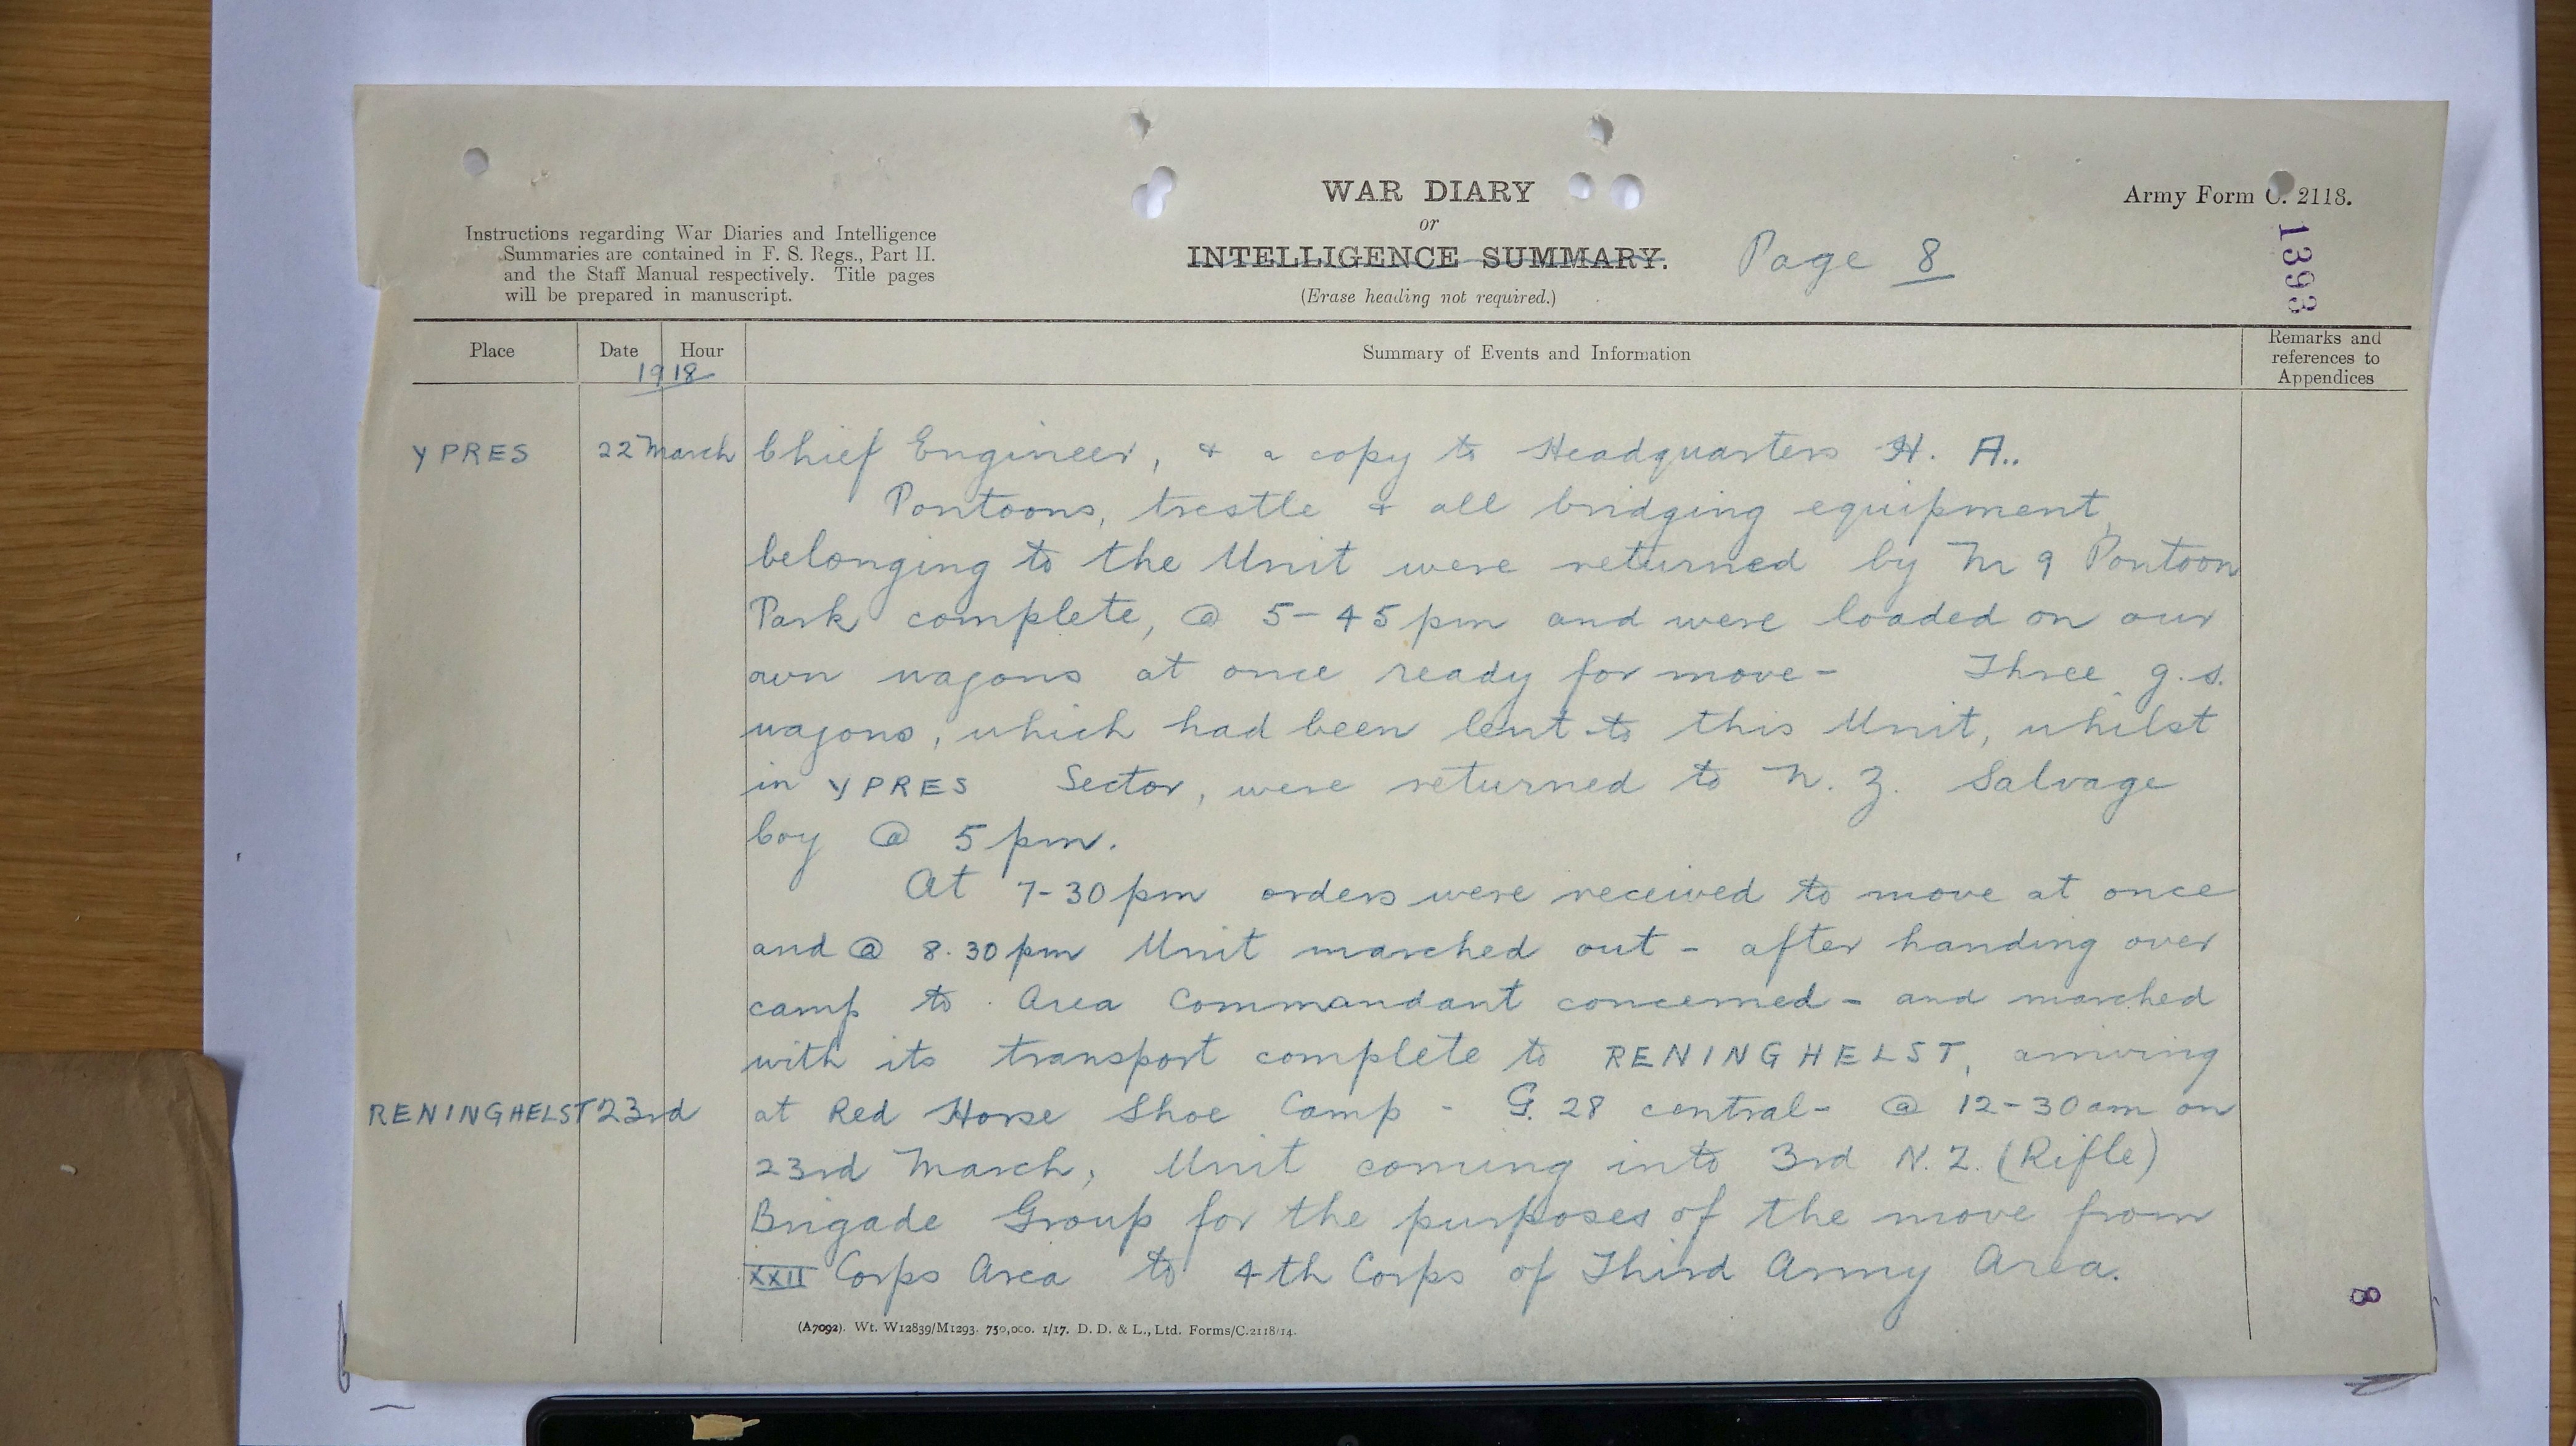 WAR DIARY
or
INTELLIGENCE SUMMARY.
(Erase heading not required.)
Page 8
Army Form C. 2118.
1393
Instructions regarding War Diaries and Intelligence
Summaries are contained in F. S. Regs., Part II.
and the Staff Manual respectively. Title pages
will be prepared in manuscript.
Place Date Hour Summary of Events and Information Remarks and
references to
Appendices
1918
YPRES 22 March Chief Engineer, & a copy to Headquarters H. A..
Pontoons, trestle & all bridging equipment,
belonging to the Unit were returned by M 9 Pontoon
Park complete, @ 5-45 pm and were loaded on our
own wagons at once ready for move- Three g.s.
wagons, which had been lent to this Unit, whilst
in YPRES Sector, were returned to N. Z. Salvage
Coy @ 5 pm.
At 7-30 pm orders were received to move at once
and @ 8.30 pm Unit marched out - after handing over
camp to Area Commandant concerned - and marched
with its transport complete to RENINGHELST, arriving
RENINGHELST 23rd at Red Horse Shoe Camp - G. 28 central- @ 12-30am on
23rd March, Unit coming into 3rd N.Z. (Rifle)
Brigade Group for the purposes of the move from
XXII Corps Area to 4th Corps of Third Army Area.
8
(A7092). Wt. W12839/M1293. 750,000. 1/17. D. D. & L., Ltd. Forms/C.2118/14.